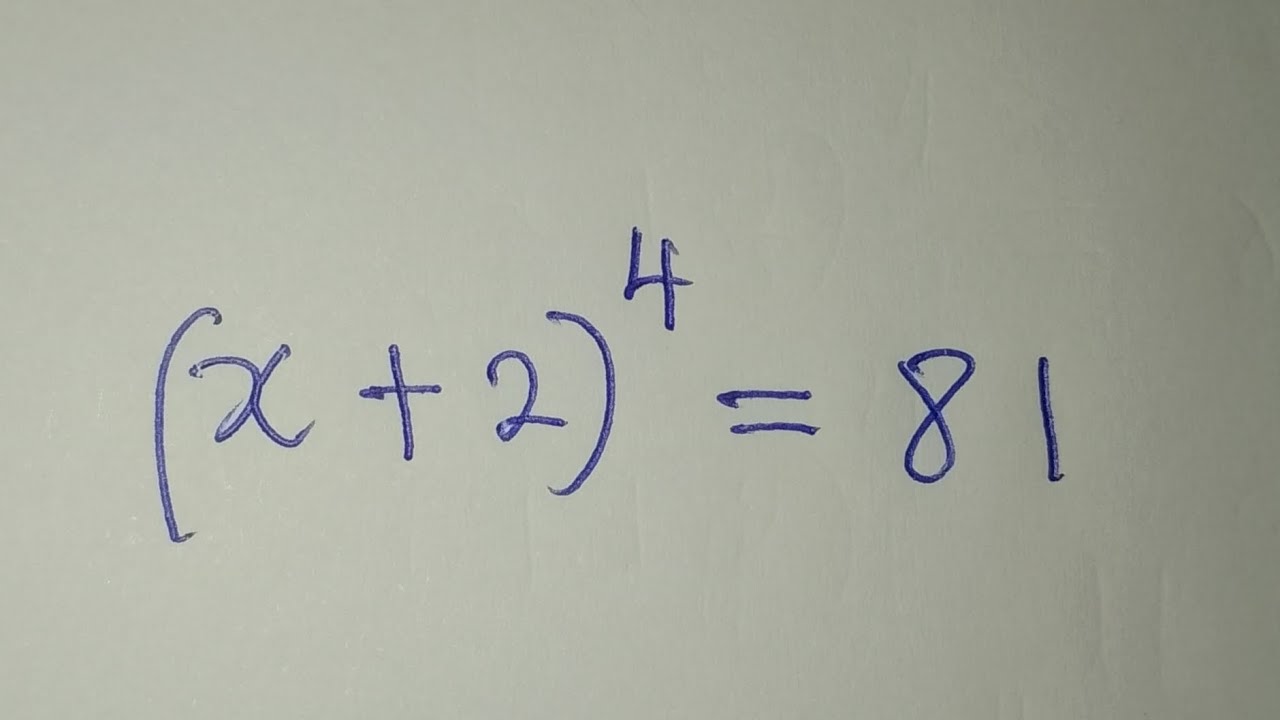 (x + 2)⁴ = 81